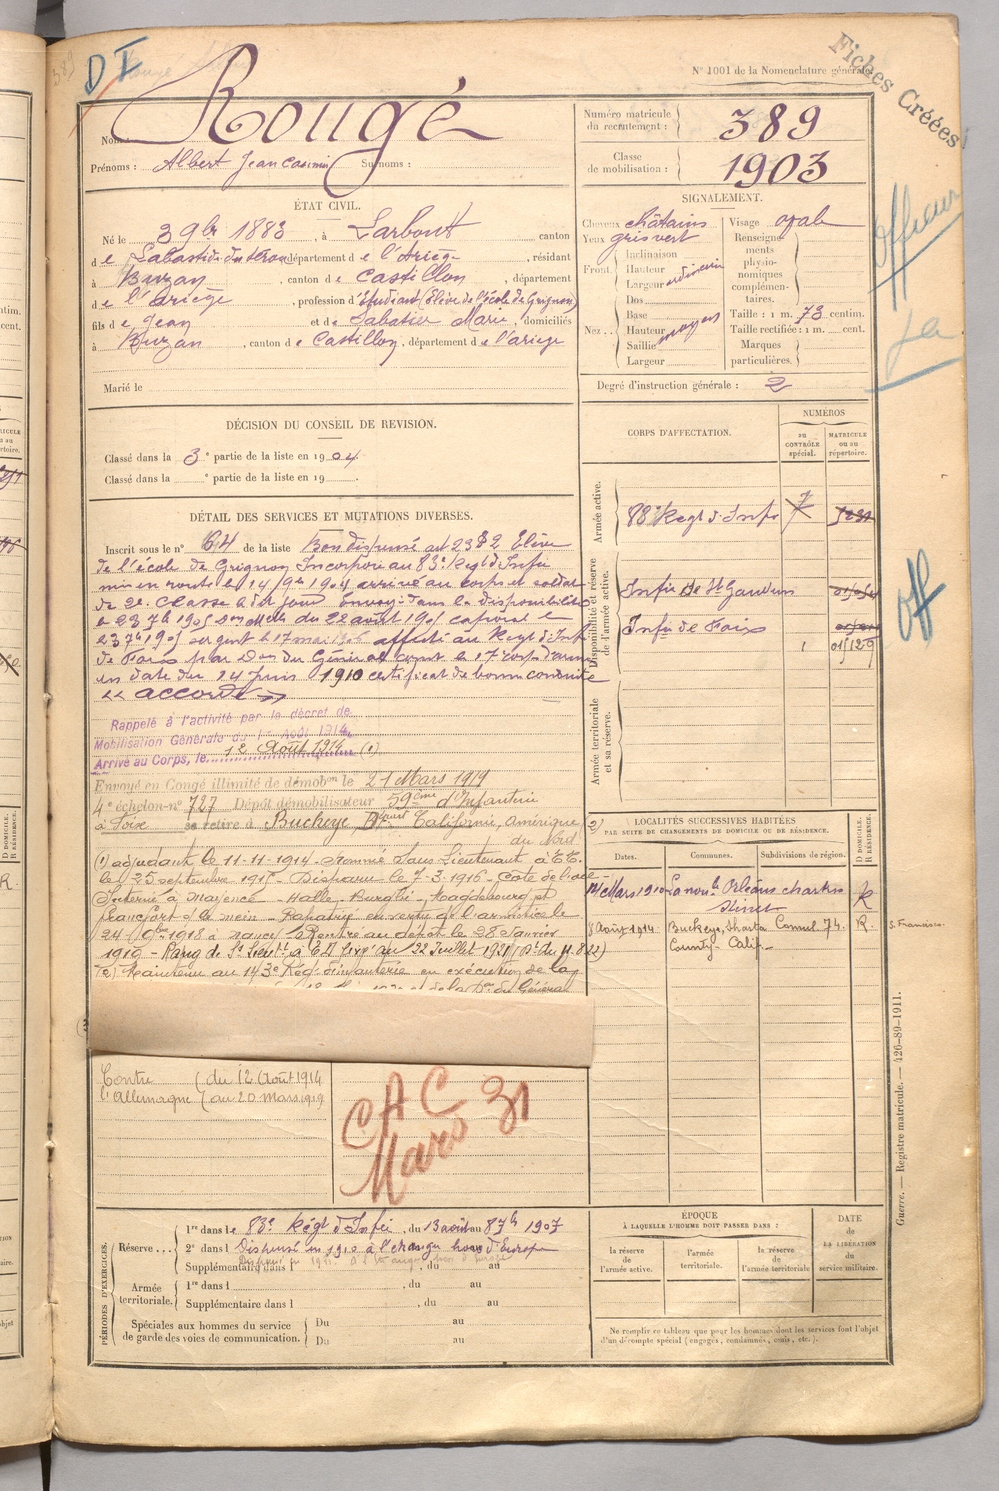 D F
N° 1001 de la Nomenclature générale.
Fiches Créées
Nom : Rougé
Prénoms : Albert Jean Casimir Surnoms :
Numéro matricule du recrutement : 389
Classe de mobilisation : 1903
ÉTAT CIVIL.
Né le 3 9bre 1883, à Larbont canton
de Labastide de Sérou département de l'Ariège, résidant
à Buzan, canton de Castillon, département
de l'Ariège, profession d'étudiant (Elève de l'école de Grignon)
fils de Jean et de Sabatier Marie, domiciliés
à Buzan, canton de Castillon, département de l'ariège
Marié le
SIGNALEMENT.
Cheveux châtains Visage ovale
Yeux gris vert
Front. Inclinaison
Hauteur
Largeur
Nez.. Dos
Base
Hauteur moyen
Saillie
Largeur
Renseignements physionomiques complémentaires.
Taille : 1 m. 73 centim.
Taille rectifiée : 1 m. cent.
Marques particulières.
Degré d'instruction générale : 2
Officier
Off
DÉCISION DU CONSEIL DE REVISION.
Classé dans la 3e partie de la liste en 1904
Classé dans la e partie de la liste en 19
CORPS D'AFFECTATION.
NUMÉROS
au CONTRÔLE spécial.
MATRICULE ou au répertoire.
Armée active.
88e Regt d'Infie
Disponibilité et réserve de l'armée active.
Infie de St Gaudens
Infie de Foix
Armée territoriale et sa réserve.
DÉTAIL DES SERVICES ET MUTATIONS DIVERSES.
Inscrit sous le n° 64 de la liste Bon dispensé art 23 § 2 Elève
de l'école de Grignon Incorporé au 83e Regt d'Infie
mis en route le 14 9bre 1904 arrivé au corps et soldat
de 2e classe le dit jour Envoyé dans la disponibilité
le 23 7bre 1905 du 22 août 1905 caporal le
23 7bre 1905 sergent le 17 mai 1906 affecté au Regt d'Inf
de Foix par Don du Général comt le 17e corps d'armée
en date du 14 juin 1910 certificat de bonne conduite
« accordé »
Rappelé à l'activité par le décret de
Mobilisation Générale du 1er Août 1914
Arrivé au Corps, le 12 Août 1914 (1)
Envoyé en Congé illimité de démobon le 21 Mars 1919
4e échelon n° 727 Dépôt démobilisateur 59ème d'Infanterie
à Foix se retire à Buckeye Californie, Amérique
du Nord
(1) adjudant le 11-11-1914 - Nommé Sous Lieutenant à T.T.
le 25 septembre 1915 - Disparu le 7-3-1916 - Cote de l'oie -
Interné à Mayence - Halle, Burglié - Magdebourg et
Francfort s/ le mein - Rapatrié en vertu de l'armistice le
24 9bre 1918 à nancy Rentré au dépôt le 28 Janvier
1919 - Rang de Ss Lieutt à T.D. fixé au 22 Juillet 1921
(2) Maintenu au 143e Rég. d'infanterie en exécution de la
LOCALITÉS SUCCESSIVES HABITÉES
PAR SUITE DE CHANGEMENTS DE DOMICILE OU DE RÉSIDENCE.
Dates. Communes. Subdivisions de région.
D DOMICILE.
R RÉSIDENCE.
14 Mars 1910 La nouvle Orléans chartres
Street R
8 Août 1914 Buckeye, Shasta Consul 74. R. S. Francisco.
County - Calif -
Contre (du 12 Août 1914
l'Allemagne (au 20 mars 1919
CAC 31
Mars
PÉRIODES D'EXERCICES.
Réserve... 1re dans le 83e Régt d'Infie, du 13 août au 8 7bre 1907
2e dans l Dispensé en 1910 à l'étranger hors d'Europe
Supplémentaire dans l , du au
Armée territoriale. 1re dans l , du au
Supplémentaire dans l , du au
Spéciales aux hommes du service de garde des voies de communication. Du au
Du au
ÉPOQUE
À LAQUELLE L'HOMME DOIT PASSER DANS :
la réserve de l'armée active.
l'armée territoriale.
la réserve de l'armée territoriale
DATE de LA LIBÉRATION du service militaire.
Ne remplir ce tableau que pour les hommes dont les services font l'objet
d'un décompte spécial (engagés, condamnés, omis, etc.).
Guerre. — Registre matricule. — 426-89-1911.